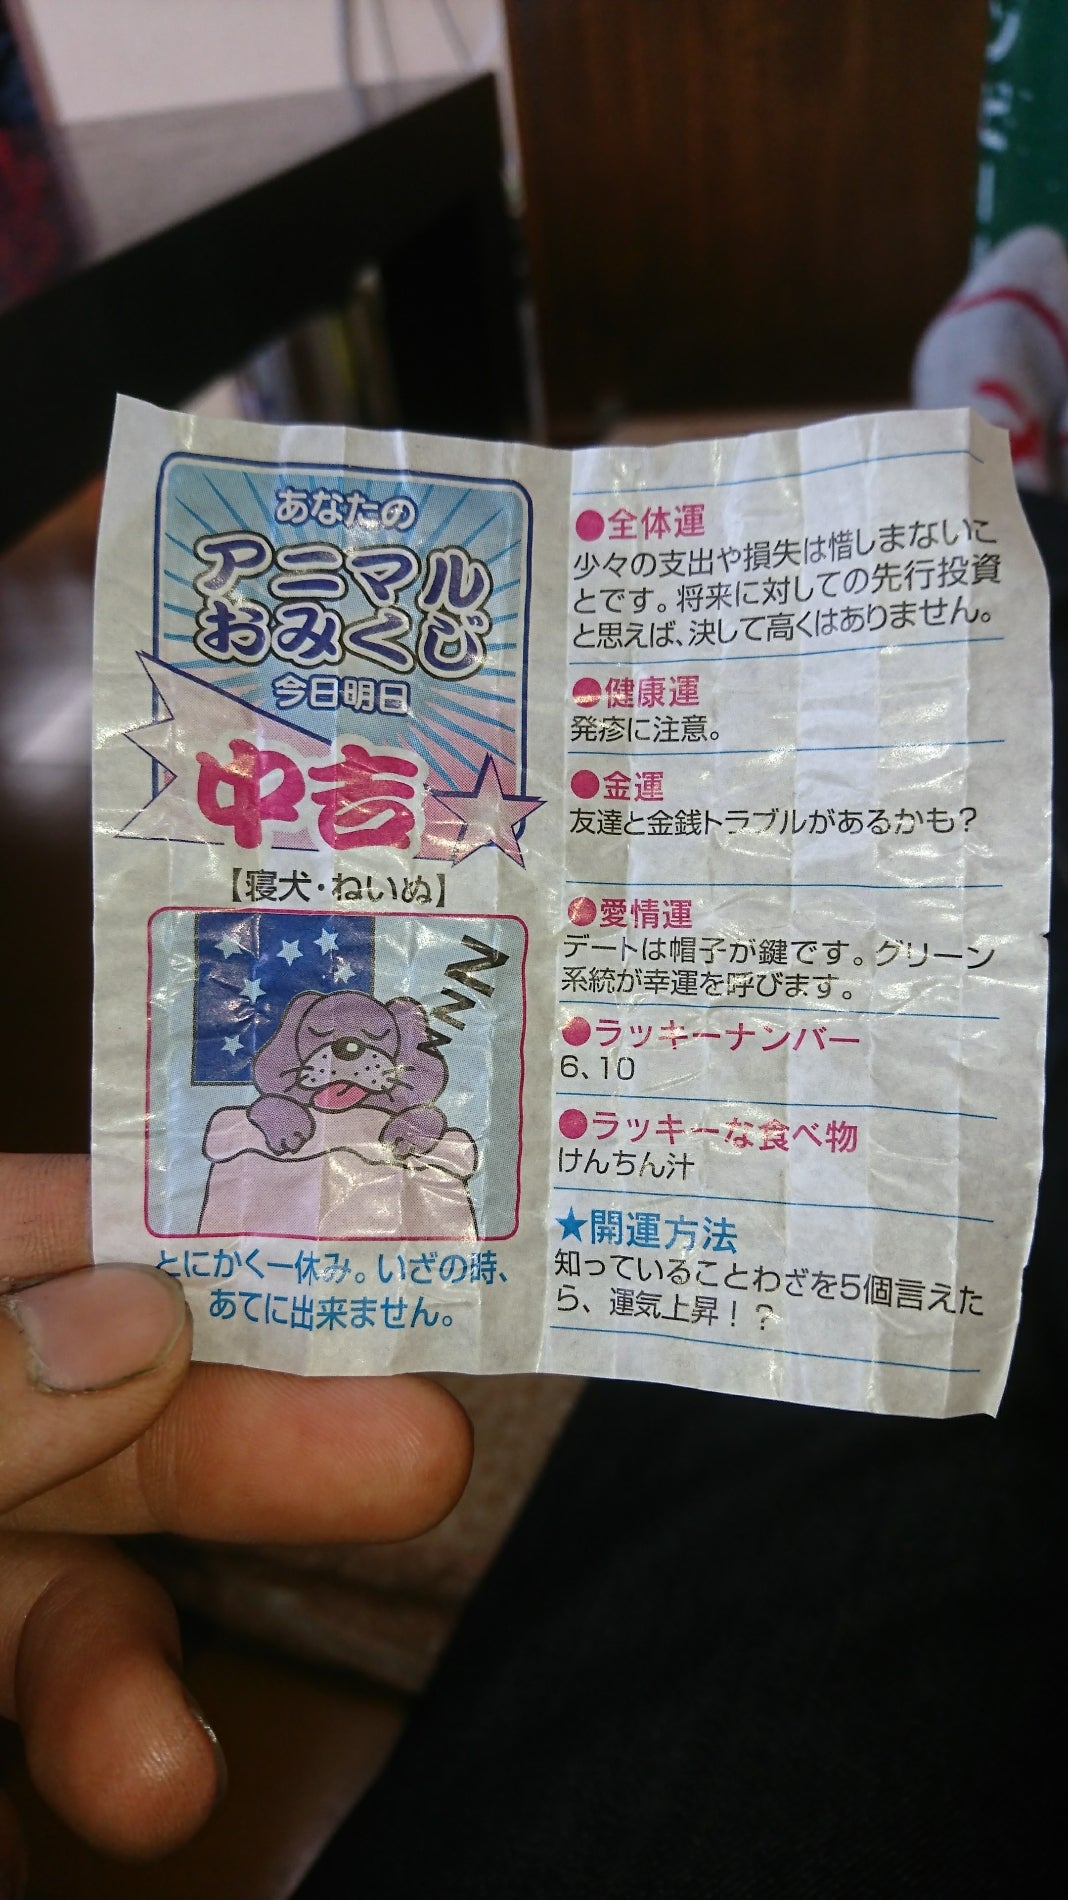 あなたの
アニマル
おみくじ
今日明日
中吉
【寝犬・ねいぬ】
ZZZZ
とにかく一休み。いざの時、
あてに出来ません。
●全体運
少々の支出や損失は惜しまないこ
とです。将来に対しての先行投資
と思えば、決して高くはありません。
●健康運
発疹に注意。
●金運
友達と金銭トラブルがあるかも？
●愛情運
デートは帽子が鍵です。グリーン
系統が幸運を呼びます。
●ラッキーナンバー
6、10
●ラッキーな食べ物
けんちん汁
★開運方法
知っていることわざを5個言えた
ら、運気上昇！？